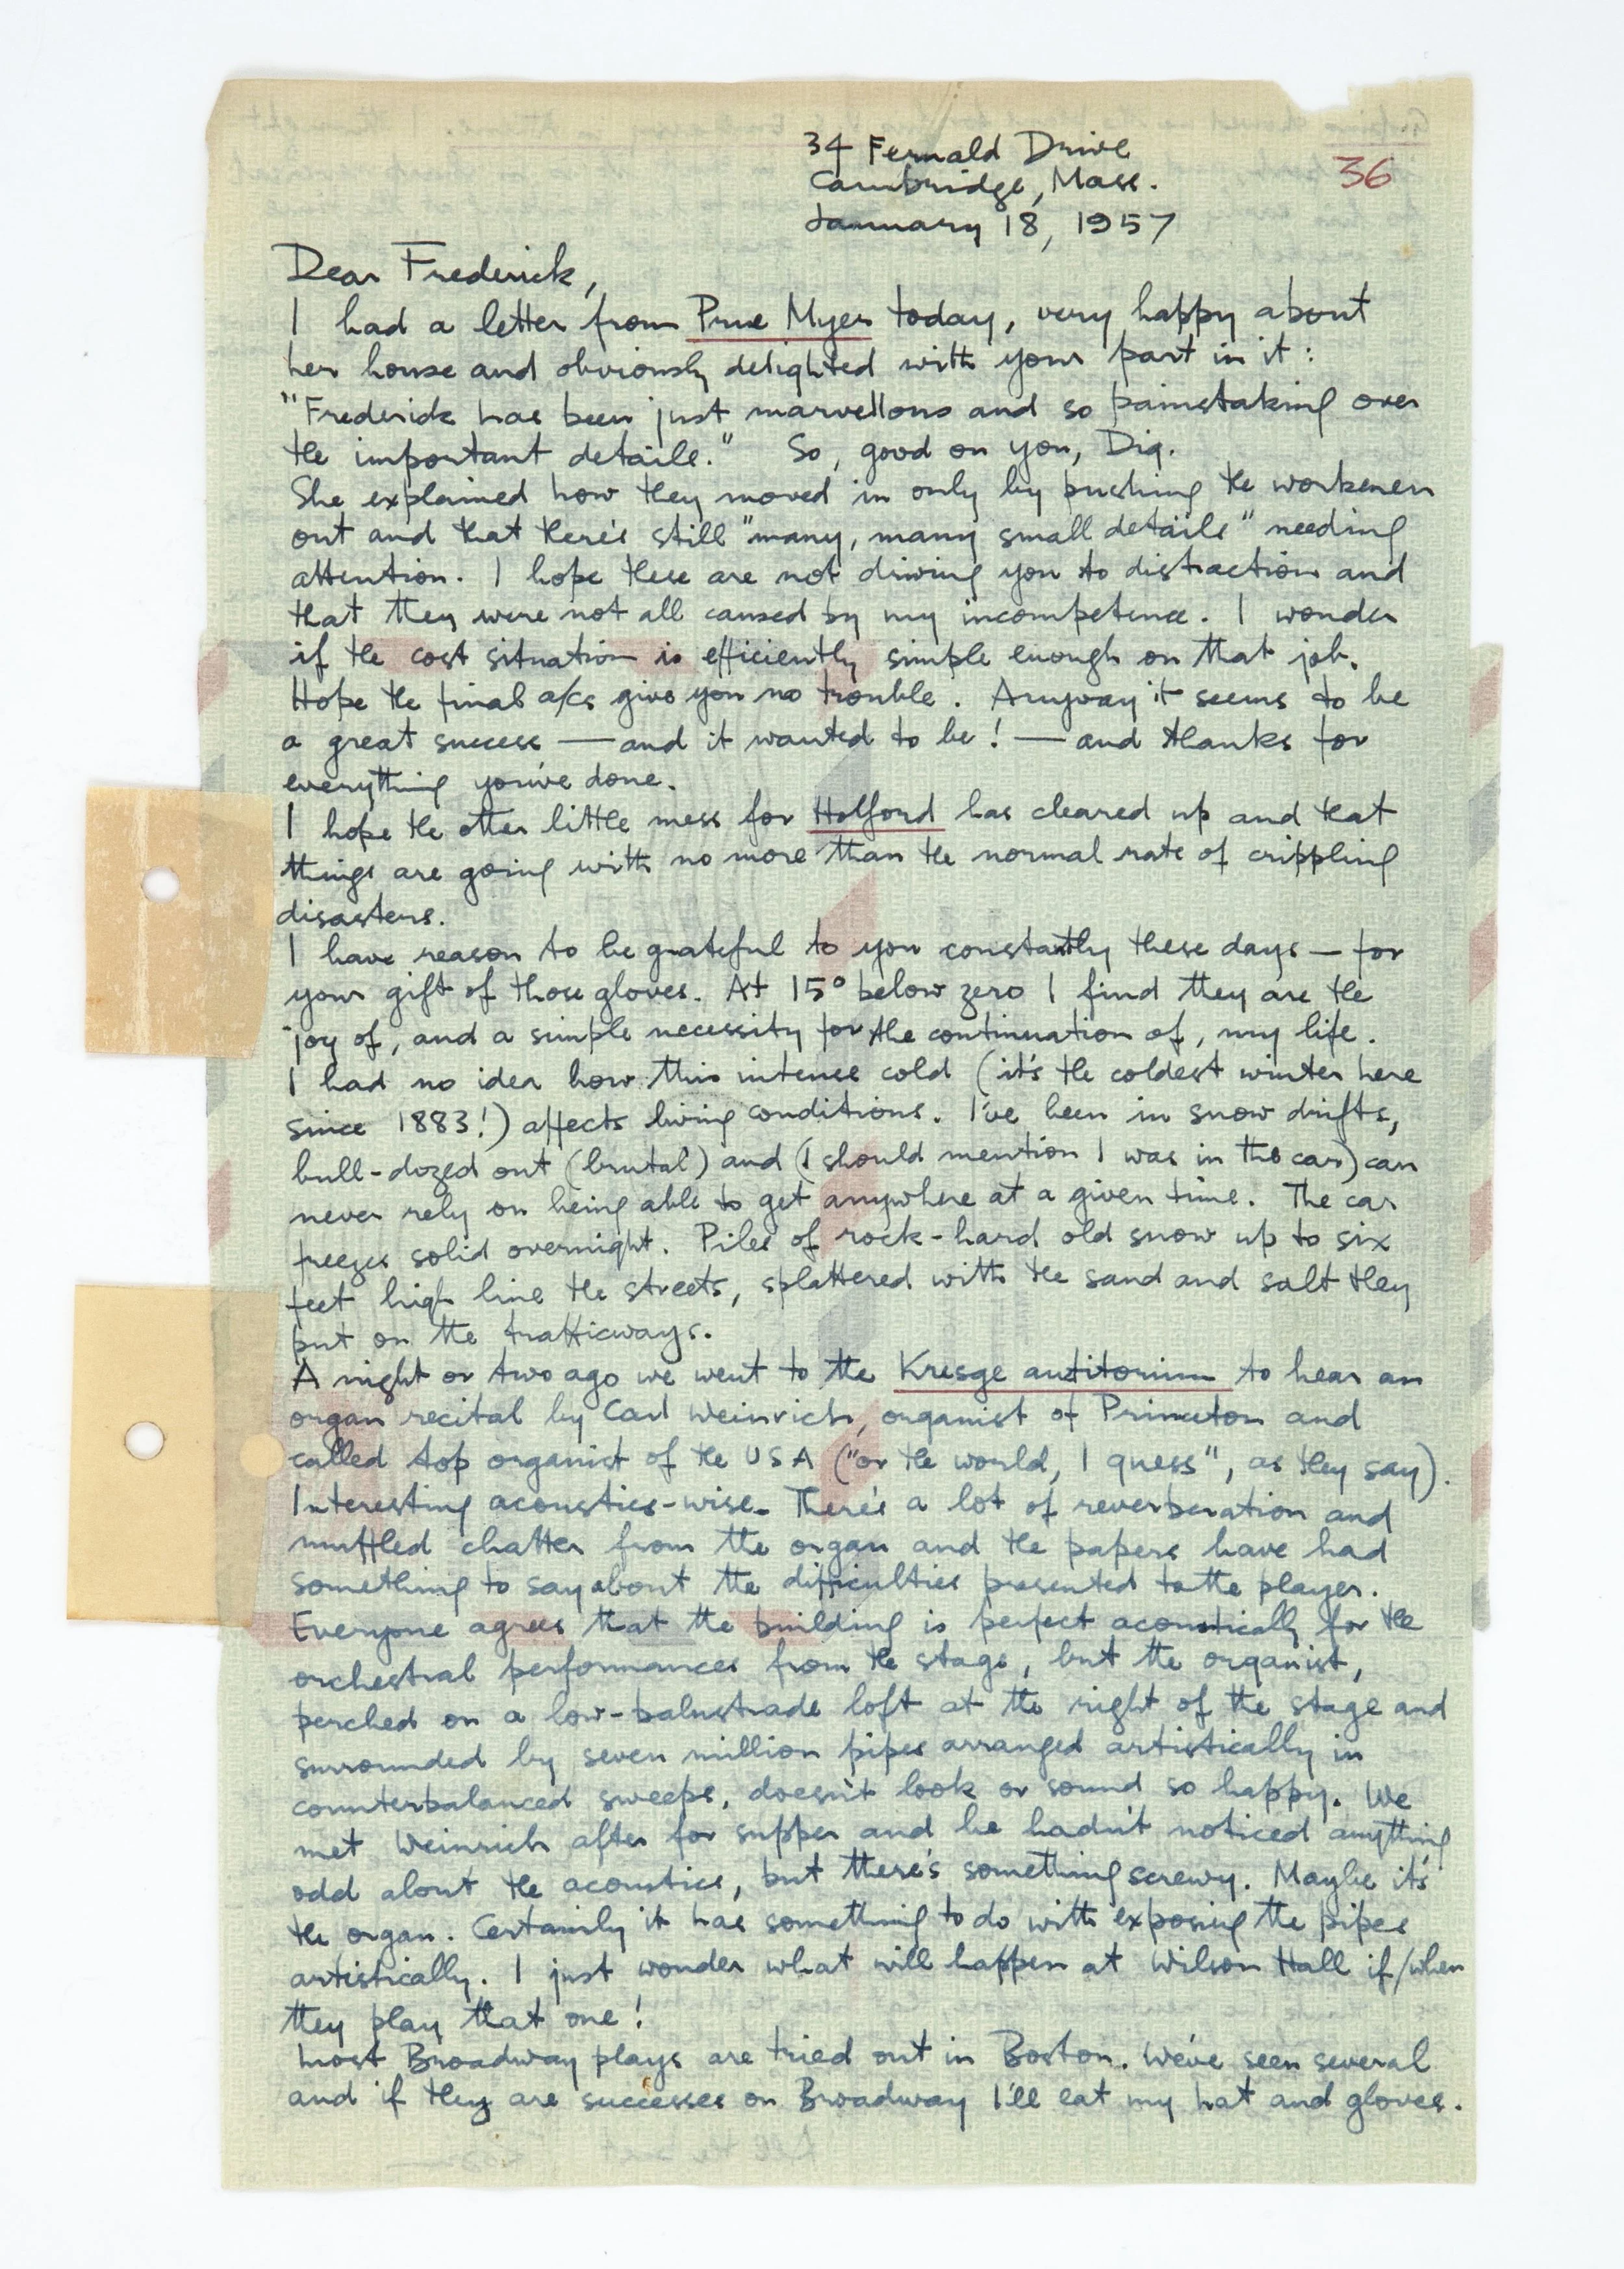 34 Fernald Drive
Cambridge, Mass.
36
January 18, 1957
Dear Frederick,
I had a letter from Prue Myer today, very happy about
her house and obviously delighted with your part in it:
"Frederick has been just marvellous and so painstaking over
the important details." So, good on you, Dig.
She explained how they moved in only by pushing the workmen
out and that there's still "many, many small details" needing
attention. I hope these are not driving you to distraction and
that they were not all caused by my incompetence. I wonder
if the cost situation is efficiently simple enough on that job.
Hope the final a/cs give you no trouble. Anyway it seems to be
a great success — and it wanted to be! — and thanks for
everything you've done.
I hope the other little mess for Holford has cleared up and that
things are going with no more than the normal rate of crippling
disasters.
I have reason to be grateful to you constantly these days — for
your gift of those gloves. At 15° below zero I find they are the
joy of, and a simple necessity for the continuation of, my life.
I had no idea how this intense cold (it's the coldest winter here
since 1883!) affects living conditions. I've been in snow drifts,
bull-dozed out (brutal) and (I should mention I was in the car) can
never rely on being able to get anywhere at a given time. The car
freezes solid overnight. Piles of rock-hard old snow up to six
feet high line the streets, splattered with the sand and salt they
put on the trafficways.
A night or two ago we went to the Kresge autitorium to hear an
organ recital by Carl Weinrich, organist of Princeton and
called top organist of the USA ("or the world, I guess", as they say).
Interesting acoustics-wise. There's a lot of reverberation and
muffled chatter from the organ and the papers have had
something to say about the difficulties presented to the player.
Everyone agrees that the building is perfect acoustically for the
orchestral performances from the stage, but the organist,
perched on a low-balustrade loft at the right of the stage and
surrounded by seven million pipes arranged artistically in
counterbalanced sweeps, doesn't look or sound so happy. We
met Weinrich after for supper and he hadn't noticed anything
odd about the acoustics, but there's something screwy. Maybe it's
the organ. Certainly it has something to do with exposing the pipes
artistically. I just wonder what will happen at Wilson Hall if/when
they play that one!
Most Broadway plays are tried out in Boston. We've seen several
and if they are successes on Broadway I'll eat my hat and gloves.